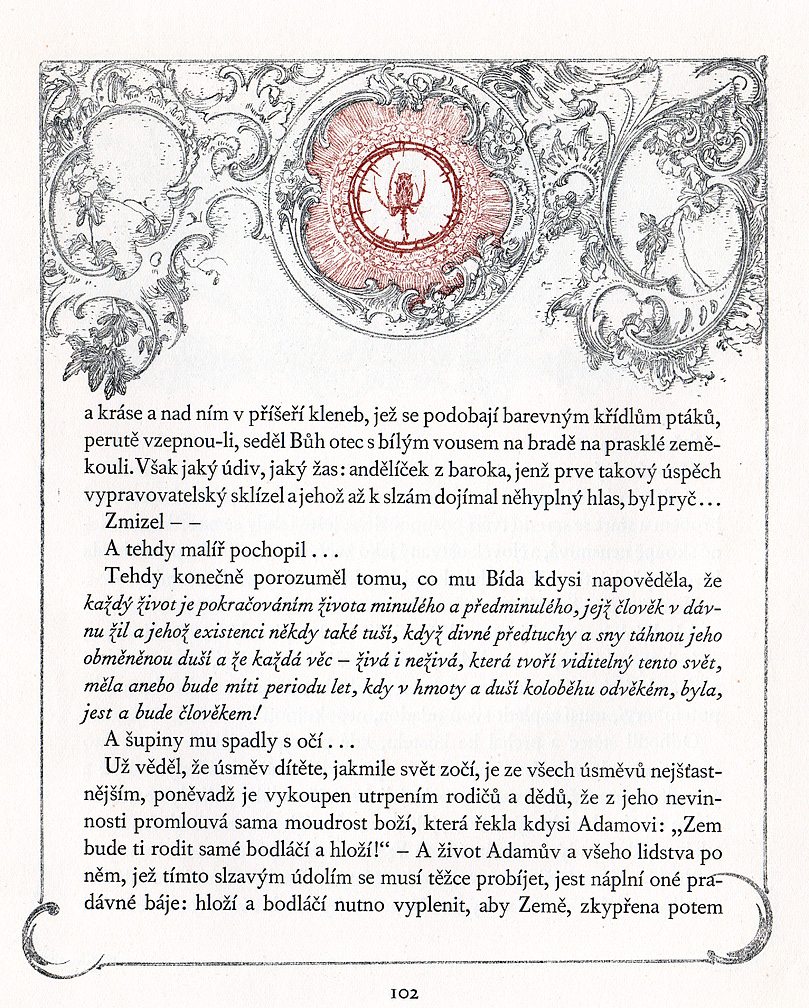 a kráse a nad ním v příšeří kleneb, jež se podobají barevným křídlům ptáků,
perutě vzepnou-li, seděl Bůh otec s bílým vousem na bradě na prasklé země-
kouli. Však jaký údiv, jaký žas: andělíček z baroka, jenž prve takový úspěch
vypravovatelský sklízel a jehož až k slzám dojímal něhyplný hlas, byl pryč...
Zmizel – –
A tehdy malíř pochopil...
Tehdy konečně porozuměl tomu, co mu Bída kdysi napověděla, že
každý život je pokračováním života minulého a předminulého, jejž člověk v dáv-
nu žil a jehož existenci někdy také tuší, když divné předtuchy a sny táhnou jeho
obměněnou duší a že každá věc – živá i neživá, která tvoří viditelný tento svět,
měla anebo bude míti periodu let, kdy v hmoty a duší koloběhu odvěkém, byla,
jest a bude člověkem!
A šupiny mu spadly s očí...
Už věděl, že úsměv dítěte, jakmile svět zočí, je ze všech úsměvů nejšťast-
nějším, poněvadž je vykoupen utrpením rodičů a dědů, že z jeho nevin-
nosti promlouvá sama moudrost boží, která řekla kdysi Adamovi: „Zem
bude ti rodit samé bodláčí a hloží!“ – A život Adamův a všeho lidstva po
něm, jež tímto slzavým údolím se musí těžce probíjet, jest náplní oné pra-
dávné báje: hloží a bodláčí nutno vyplenit, aby Země, zkypřena potem
102